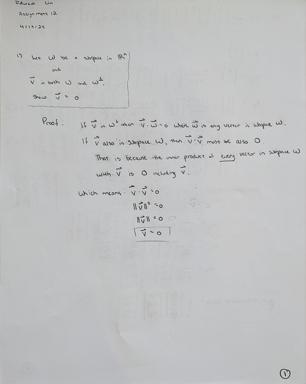 Assignment 12
1) Let W be a subspace in ℝⁿ
and
v⃗ in both W and W⊥.
Show v⃗ = 0
Proof: If v⃗ in W⊥ then v⃗·w⃗ = 0 where w⃗ is any vector in subspace W.
If v⃗ also in subspace W, then v⃗·v⃗ must be also 0
That is because the inner product of every vector in subspace W
with v⃗ is 0 including v⃗.
Which means v⃗·v⃗ = 0
||v⃗||² = 0
||v⃗|| = 0
v⃗ = 0
1